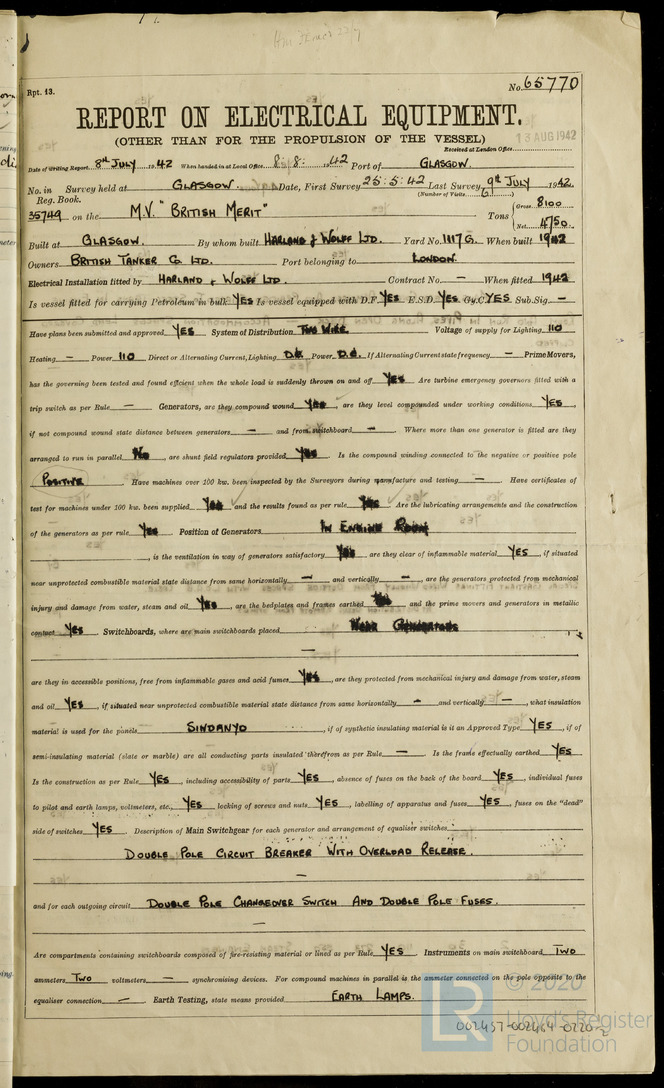 Rpt. 13.
No. 65770
REPORT ON ELECTRICAL EQUIPMENT.
(OTHER THAN FOR THE PROPULSION OF THE VESSEL)
Received at London Office 13 AUG 1942
Date of Writing Report 8th JULY 1942 When handed in at Local Office 8/8 1942 Port of GLASGOW.
No. in Survey held at GLASGOW. Date, First Survey 25:5:42 Last Survey 9th JULY 1942
Reg. Book. (Number of Visits 6)
35749 on the M.V. "BRITISH MERIT" Tons { Gross 8100 Net 4750
Built at GLASGOW. By whom built HARLAND & WOLFF LTD. Yard No. 1117G. When built 1942
Owners BRITISH TANKER Co LTD. Port belonging to LONDON.
Electrical Installation fitted by HARLAND & WOLFF LTD. Contract No. — When fitted 1942
Is vessel fitted for carrying Petroleum in bulk YES Is vessel equipped with D.F. YES E.S.D. YES Gy.C. YES Sub.Sig. —
Have plans been submitted and approved YES System of Distribution TWO WIRE. Voltage of supply for Lighting 110
Heating — Power 110 Direct or Alternating Current, Lighting D.C. Power D.C. If Alternating Current state frequency — Prime Movers,
has the governing been tested and found efficient when the whole load is suddenly thrown on and off YES Are turbine emergency governors fitted with a
trip switch as per Rule — Generators, are they compound wound YES, are they level compounded under working conditions YES,
if not compound wound state distance between generators — and from switchboard — Where more than one generator is fitted are they
arranged to run in parallel NO, are shunt field regulators provided YES Is the compound winding connected to the negative or positive pole
POSITIVE Have machines over 100 kw. been inspected by the Surveyors during manufacture and testing — Have certificates of
test for machines under 100 kw. been supplied YES and the results found as per rule YES Are the lubricating arrangements and the construction
of the generators as per rule YES Position of Generators IN ENGINE ROOM
, is the ventilation in way of generators satisfactory YES are they clear of inflammable material YES, if situated
near unprotected combustible material state distance from same horizontally — and vertically —, are the generators protected from mechanical
injury and damage from water, steam and oil YES, are the bedplates and frames earthed YES and the prime movers and generators in metallic
contact YES Switchboards, where are main switchboards placed NEAR GENERATORS
—
are they in accessible positions, free from inflammable gases and acid fumes YES, are they protected from mechanical injury and damage from water, steam
and oil YES, if situated near unprotected combustible material state distance from same horizontally — and vertically —, what insulation
material is used for the panels SINDANYO, if of synthetic insulating material is it an Approved Type YES, if of
semi-insulating material (slate or marble) are all conducting parts insulated therefrom as per Rule — Is the frame effectually earthed YES
Is the construction as per Rule YES, including accessibility of parts YES, absence of fuses on the back of the board YES, individual fuses
to pilot and earth lamps, voltmeters, etc., YES locking of screws and nuts YES, labelling of apparatus and fuses YES, fuses on the "dead"
side of switches YES Description of Main Switchgear for each generator and arrangement of equaliser switches
DOUBLE POLE CIRCUIT BREAKER WITH OVERLOAD RELEASE.
—
and for each outgoing circuit DOUBLE POLE CHANGEOVER SWITCH AND DOUBLE POLE FUSES.
—
Are compartments containing switchboards composed of fire-resisting material or lined as per Rule YES Instruments on main switchboard TWO
ammeters TWO voltmeters — synchronising devices. For compound machines in parallel is the ammeter connected on the pole opposite to the
equaliser connection — Earth Testing, state means provided EARTH LAMPS.
© 2020
Lloyd's Register
Foundation
LR
002457-002464-0220-2